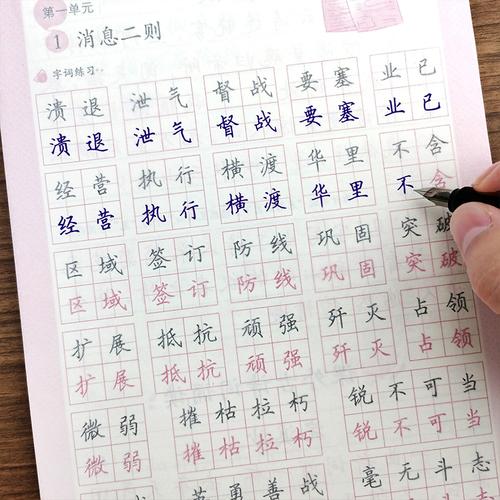 第一单元
1 消息二则
字词练习
溃退 泄气 督战 要塞 业已
溃退 泄气 督战 要塞 业已
经营 执行 横渡 华里 不含
经营 执行 横渡 华里 不含
区域 签订 防线 巩固 突破
区域 签订 防线 巩固 突破
扩展 抵抗 顽强 歼灭 占领
扩展 抵抗 顽强 歼灭 占领
微弱 摧枯拉朽 锐不可当
微弱 摧枯拉朽 锐不可当
英勇善战 毫无斗志